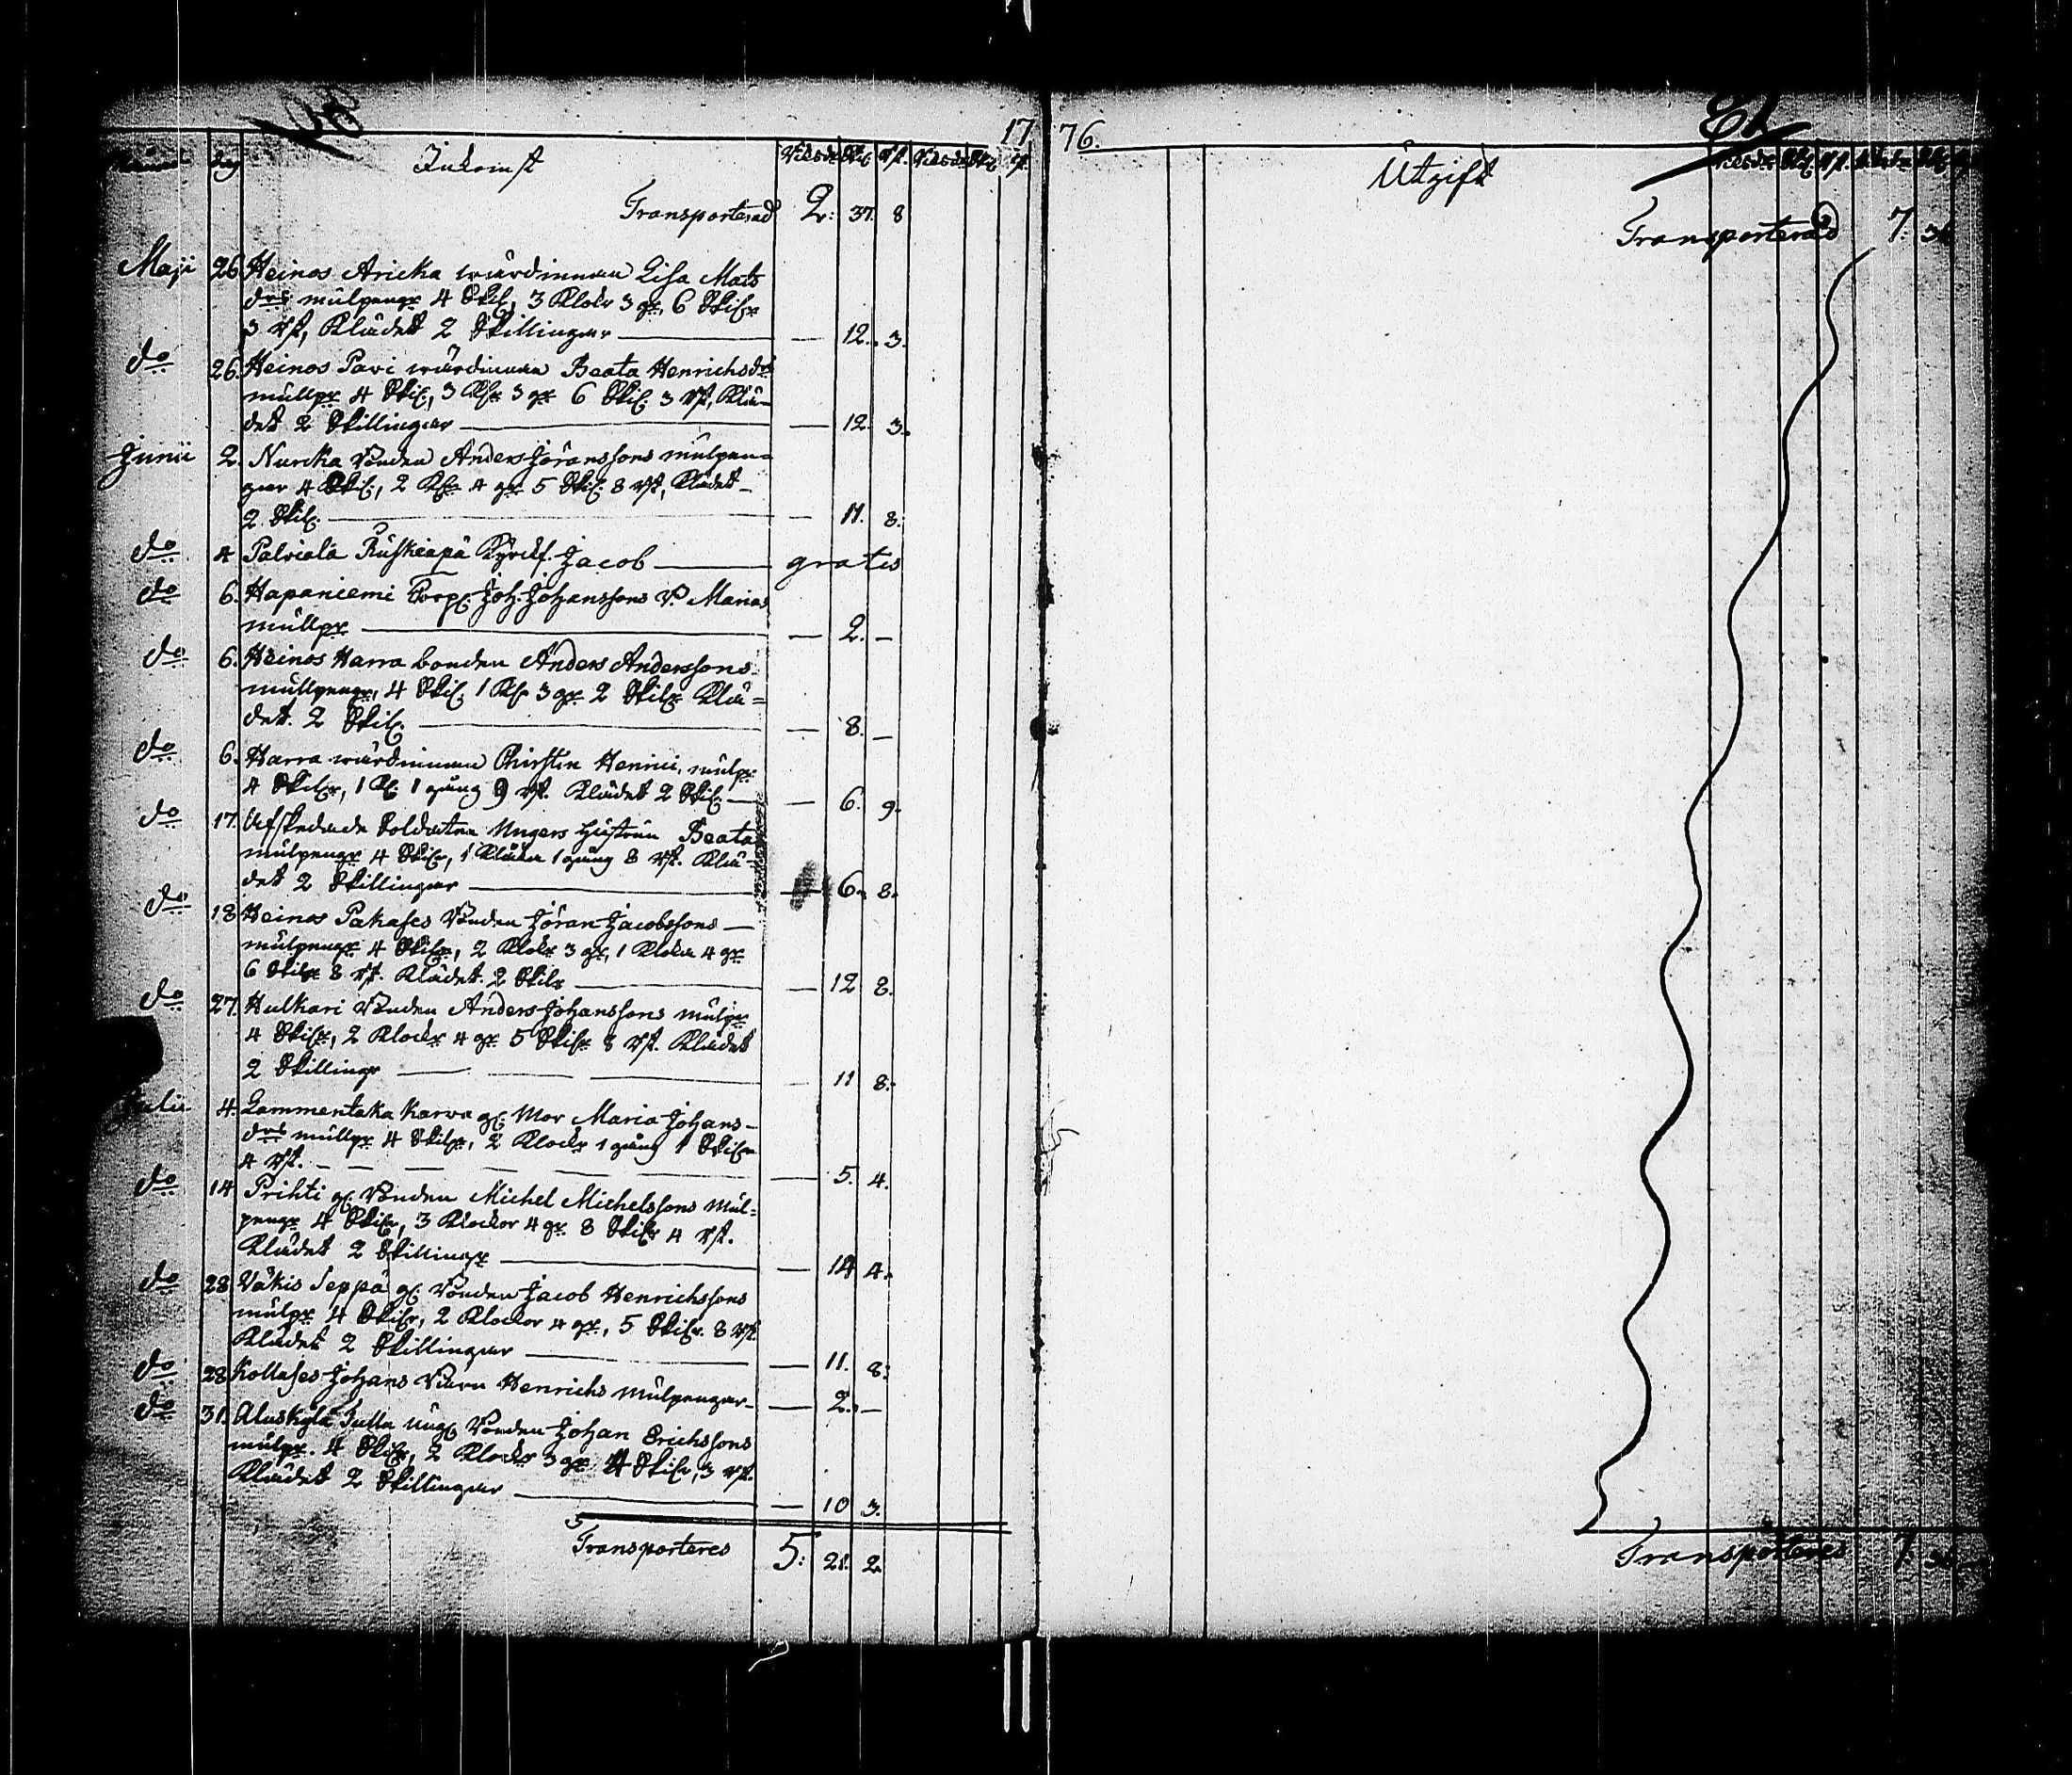 1776.
Månad dag Inkomst Riksdr Skil. rst. Riksdr Skil. rst.
Transporterad 2: 37. 8
Maji 26. Heinos Aricka wärdinnan Lisa Mats
drs mullpengr 4 Skil, 3 Klockr 3 gr, 6 Skilr
3 rst, Klädet 2 Skillingar — 12. 3.
do 26. Heinos Pavi wärdinnan Beata Henrichsdrs
mullpgr 4 Skil., 3 Klr 3 gr 6 Skil. 3 rst, Klä-
det 2 Skillingar — 12. 3.
Junii 2. Nurcka Bonden Anders Jöranssons mulpen=
gar 4 Skil., 2 Klr 4 gr 5 Skil. 8 rst, Klädet
2 Skil. — 11. 8.
do 4 Palviala Ruskeapä Kyrckf. Jacob — gratis
do 6. Hapaniemi Torp. Joh. Johanssons B. Marias
mullpgr — 2. —
do 6. Heinos Harra bonden Anders Anderssons
mullpengr, 4 Skil. 1 Kl 3 gr 2 Skilr Klä=
det 2 Skil. — 8. —
do 6. Harra wärdinnan Christin Henrici, mulpgr
4 Skilr, 1 Kl. 1 gång 9 rst. Klädet 2 Skil. — 6. 9.
do 17. Afskedade Soldaten Ungers hustru Beata
mulpengr 4 Skilr, 1 Klocka 1 gång 8 rst. Klä-
det 2 Skillingar — 6. 8.
do 18 Heinos Pakases Bonden Jöran Jacobssons
mulpengr 4 Skilr, 2 Klockr 3 gr, 1 Klocka 4 gr
6 Skilr 8 rst. Klädet 2 Skilr — 12 8.
do 27. Hulkari Bonden Anders Johanssons mulpgr
4 Skilr, 2 Klockr 4 gr 5 Skilr 8 rst. Klädet
2 Skillingr — 11 8.
Julii 4. Lammentaka Karra gl. Mor Maria Johans-
drs mullpgr 4 Skilr, 2 Klockr 1 gång 1 Skilr
4 rst. — 5. 4.
do 14 Prihti gl. Bonden Michel Michelssons mul=
pengr 4 Skilr, 3 Klockor 4 gr 8 Skilr 4 rst.
Klädet 2 Skillingr — 14 4.
do 28 Väkis Seppä gl. Bonden Jacob Henrichssons
mulpgr 4 Skilr, 2 Klockor 4 gr, 5 Skilr. 8 rst
Klädet 2 Skillingar — 11. 8.
do 28 Kollases Johans Barn Henrichs mulpengar — 2. —
do 31. Aluskylä Tulla ung. Bonden Johan Erichssons
mulpgr. 4 Skilr, 2 Klockr 3 gr 4 Skilr, 3 rst.
Klädet 2 Skillingar — 10 3.
Transporteres 5: 21. 2
Utgift Riksdr Skil. rst. Riksdr Skil.
Transporterad 7.
Transporteres 7.